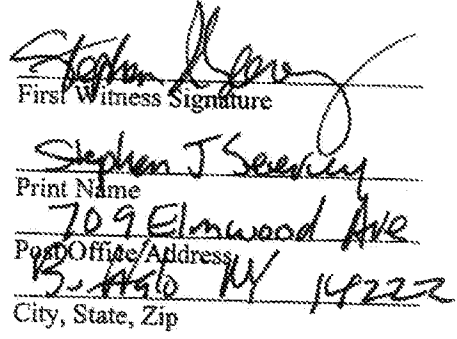 Stephen
First Witness Signature
Stephen J
Print Name
709 Elmwood Ave
Post Office/Address
Buffalo NY 14222
City, State, Zip